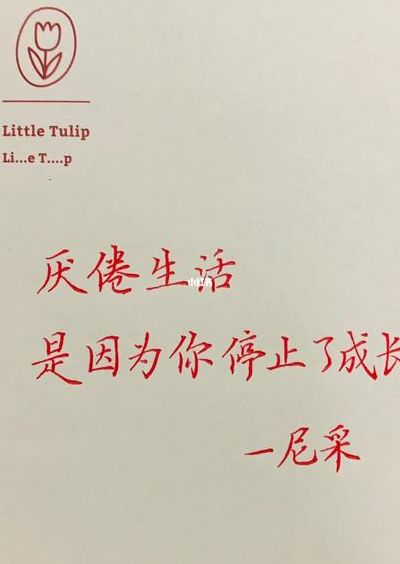 Little Tulip
Li...e T....p
厌倦生活
是因为你停止了成长
一尼采